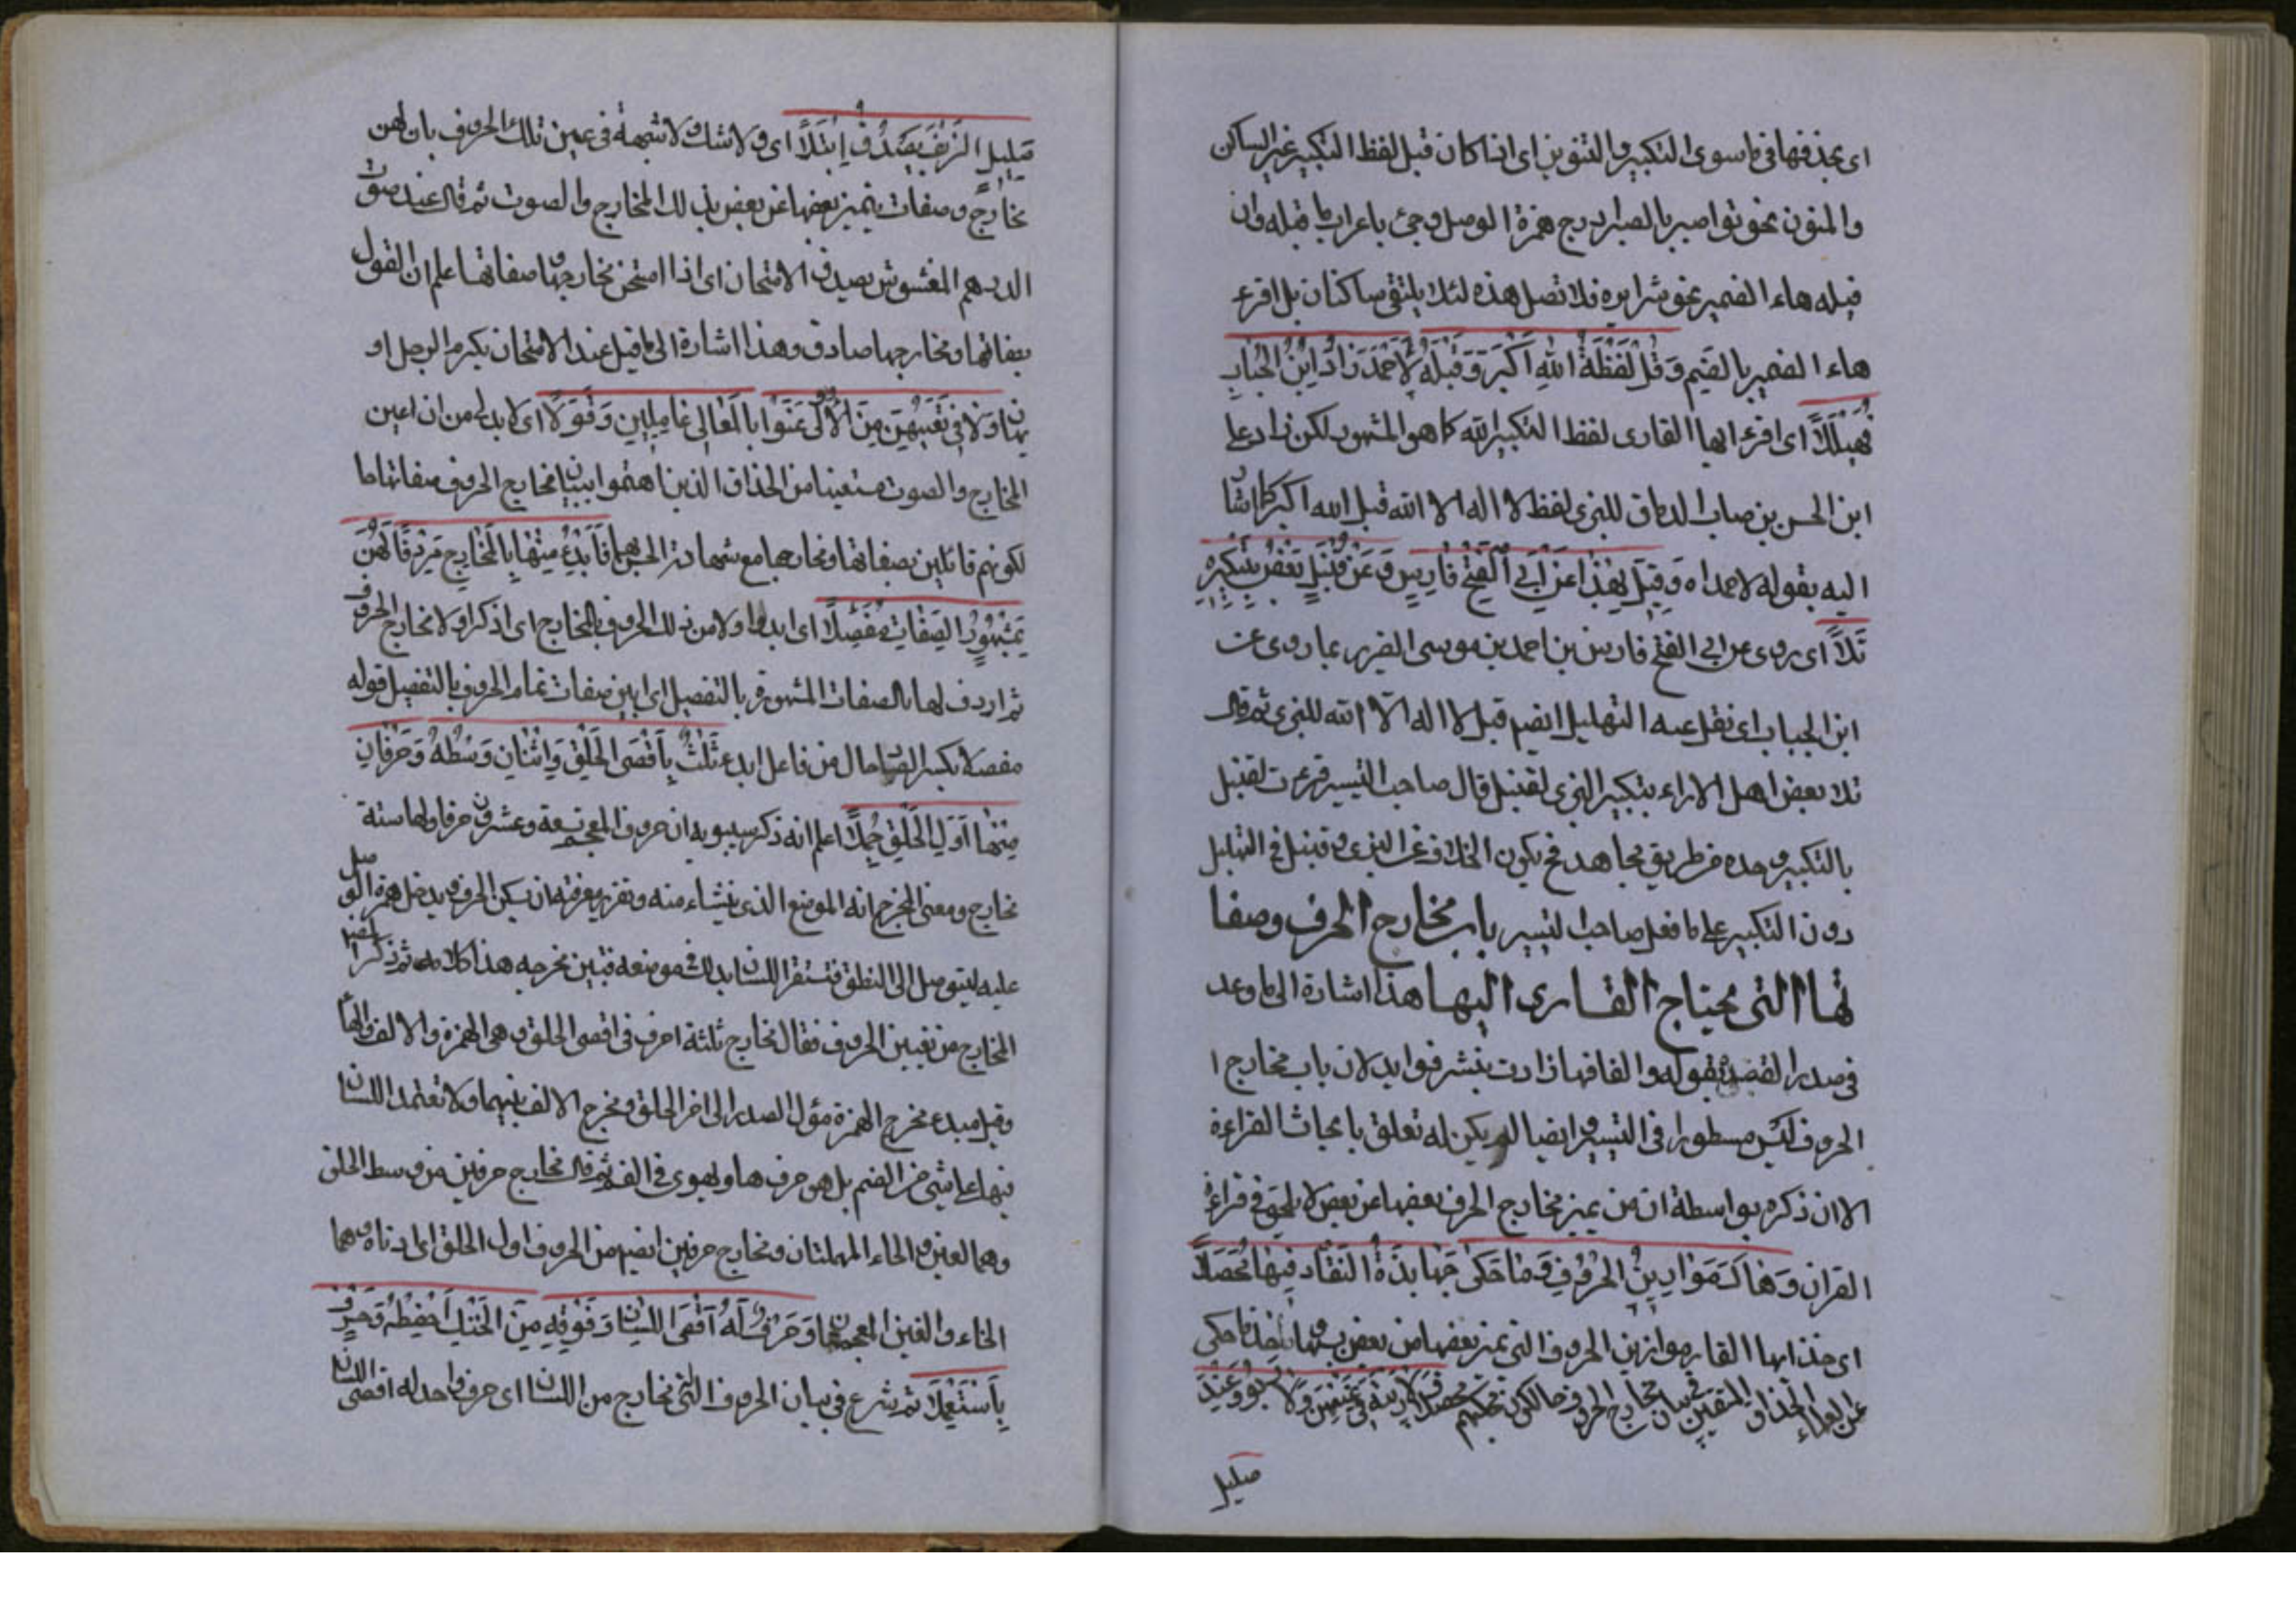 اى بحذفها فى ما سوى التكبير والتنوين اى اذا كان قبل لفظ التكبير غير الساكن
والمنون نحو تواصوا بالصبر ادرج همزة الوصل وجئ باعراب ما قبله وان
قبله هاء الضمير نحو شرا يره فلا تصل هذه لئلا يلتقى ساكنان بل اقرء
هاء الضمير بالضم وَقُلْ لَفْظَةُ اللهُ اَكْبَرْ وَقَبْلَهُ لِاَحْمَدَ زَادَ ابْنُ الْحُبَابِ
فَهَيْلَلَا اى اقرء ايها القارى لفظ التكبير الله كما هو المشهور لكن زاد على
ابن الحسن بن حباب الدقاق للبزى لفظ لا اله الا الله قبل الله اكبر كما اشار
اليه بقوله لاحمد اه وَقِيلَ بِهٰذَا عَنْ اَبِى الْفَتْحِ فَارِسٍ وَعَنْ قُنْبُلٍ بَعْضٌ بِتَكْبِيرِهِ
تَلَا اى روى عن ابى الفتح فارس بن احمد بن موسى الضرير بما روى عن
ابن الحباب اى نقل عنه التهليل ايضم قبل لا اله الا الله للبزى ثم قال
تلا بعض اهل الاراء بتكبير البزى لقنبل قال صاحب التيسير قرءت لقنبل
بالتكبير وحده من طريق مجاهد فح يكون الخلاف عن البزى وقنبل فى التهليل
دون التكبير على ما فعل صاحب التيسير باب مخارج الحرف وصفا
تها التى يحتاج القارى اليها هذا اشارة الى ما وعد
فى صدر القصيدة بقوله والفافها زادت بنشر فوايد لان باب مخارج ا
الحروف ليس مسطورا فى التيسير وايضا لم يكن له تعلق بابحاث القراءة
الا ان ذكره بواسطة ان من يميز مخارج الحرف بعضها عن بعض لا يلحق فى قراءة
القران وَهَاكَ مَوَازِينَ الْحُرُوفِ وَمَا حَكٰى جَهَابِذَةُ النُّقَّادِ فِيهَا مُحَصَّلَا
اى خذ ايها القارى موازين الحروف التى يميز بعضها من بعض بها وخذ ما حكى
عن العلماء الحذاق المتقين فى بيان مخارج الحروف حال كون حكمهم محصلا وَلَا رِيبَةٌ فِى عَيْنِهِنَّ وَلَا رِبًوا وَعِنْدَ
صليل
صَلِيلِ الزَّيْفِ يَصْدُقُ اِبْتِلَا اى ولا شك ولا شبهة فى عين تلك الحروف بان لهن
مخارج وصفات يتميز بعضها عن بعض بذلك المخارج والصوت ثم قال عند صوت
الدرهم المغشوش يصدق الامتحان اى اذا امتحن مخارجها وصفاتها علم ان القول
بصفاتها ومخارجها صادق وهذا اشارة الى ما قيل عند الامتحان يكرم الرجل او
يهان وَلَا بُدَّ فِى تَعْيِينِهِنَّ مِنَ الْاُولٰى عَنَوْا بِالْمَعَانِى عَامِلِينَ وَقُوَّلَا اى لا بد لى من ان اعين
المخارج والصوت مستعينا من الحذاق الذين اهتموا ببيان مخارج الحروف وصفاتها حا
لكونهم قائلين بصفاتها ومخارجها مع شهادة الحس لهما فَاَبْدَءُ مِنْهَا بِالْمَخَارِجِ مُرْدِفًا لَهُنَّ
بِمَشْهُورِ الصِّفَاتِ مُفَصِّلَا اى ابدء اولا من ذلك الحروف بالمخارج اى اذكر اولا مخارج الحروف
ثم اردف لها بالصفات المشهورة بالتفصيل اى ابين صفات تمام الحروف بالتفصيل قوله
مفصلا بكسر الصاد حال من فاعل ابدء ثَلٰثٌ بِاَقْصَى الْحَلْقِ وَاثْنَانِ وَسْطُهُ وَحَرْفَانِ
مِنْهَا اَوَّلَ الْحَلْقِ جُمِّلَا اعلم انه ذكر سيبويه ان حروف المعجم تسعة وعشرون حرفا ولها ستة
مخارج ومعنى المخرج انه الموضع الذى ينشاء منه وتقرير معرفته ان يسكن الحروف يدخل همزة الوصل
عليه ليتوصل الى النطق فتستقر اللسان بذلك فى موضعه فتبين مخرجه هذا كلامه ثم ذكر
المخارج من تعيين الحروف فقال مخارج ثلثة احرف فى اقصى الحلق وهى الهمزة والالف والهاء
وقيل مبدء مخرج الهمزة مؤل الصدر الى اخر الحلق ومخرج الالف بينهما ولا تعتمد اللسان
فيها على شئ من الفم بل هو حرف هاو يهوى فى الفم ثم قال مخارج حرفين من وسط الحلق
وهما العين والحاء المهملتان ومخارج حرفين ايضم من الحروف اول الحلق اى ادناه وهما
الخاء والغين المعجمتان وَحَرْفٌ لَهُ اَقْصَى اللِّسَانِ وَفَوْقِهِ مِنَ الْحَنَكِ احْفِظْهُ وَحَرْفٌ
بِاَسْفَلَا ثم شرع فى بيان الحروف التى مخارج من اللسان اى حرف واحد له اقصى اللسان